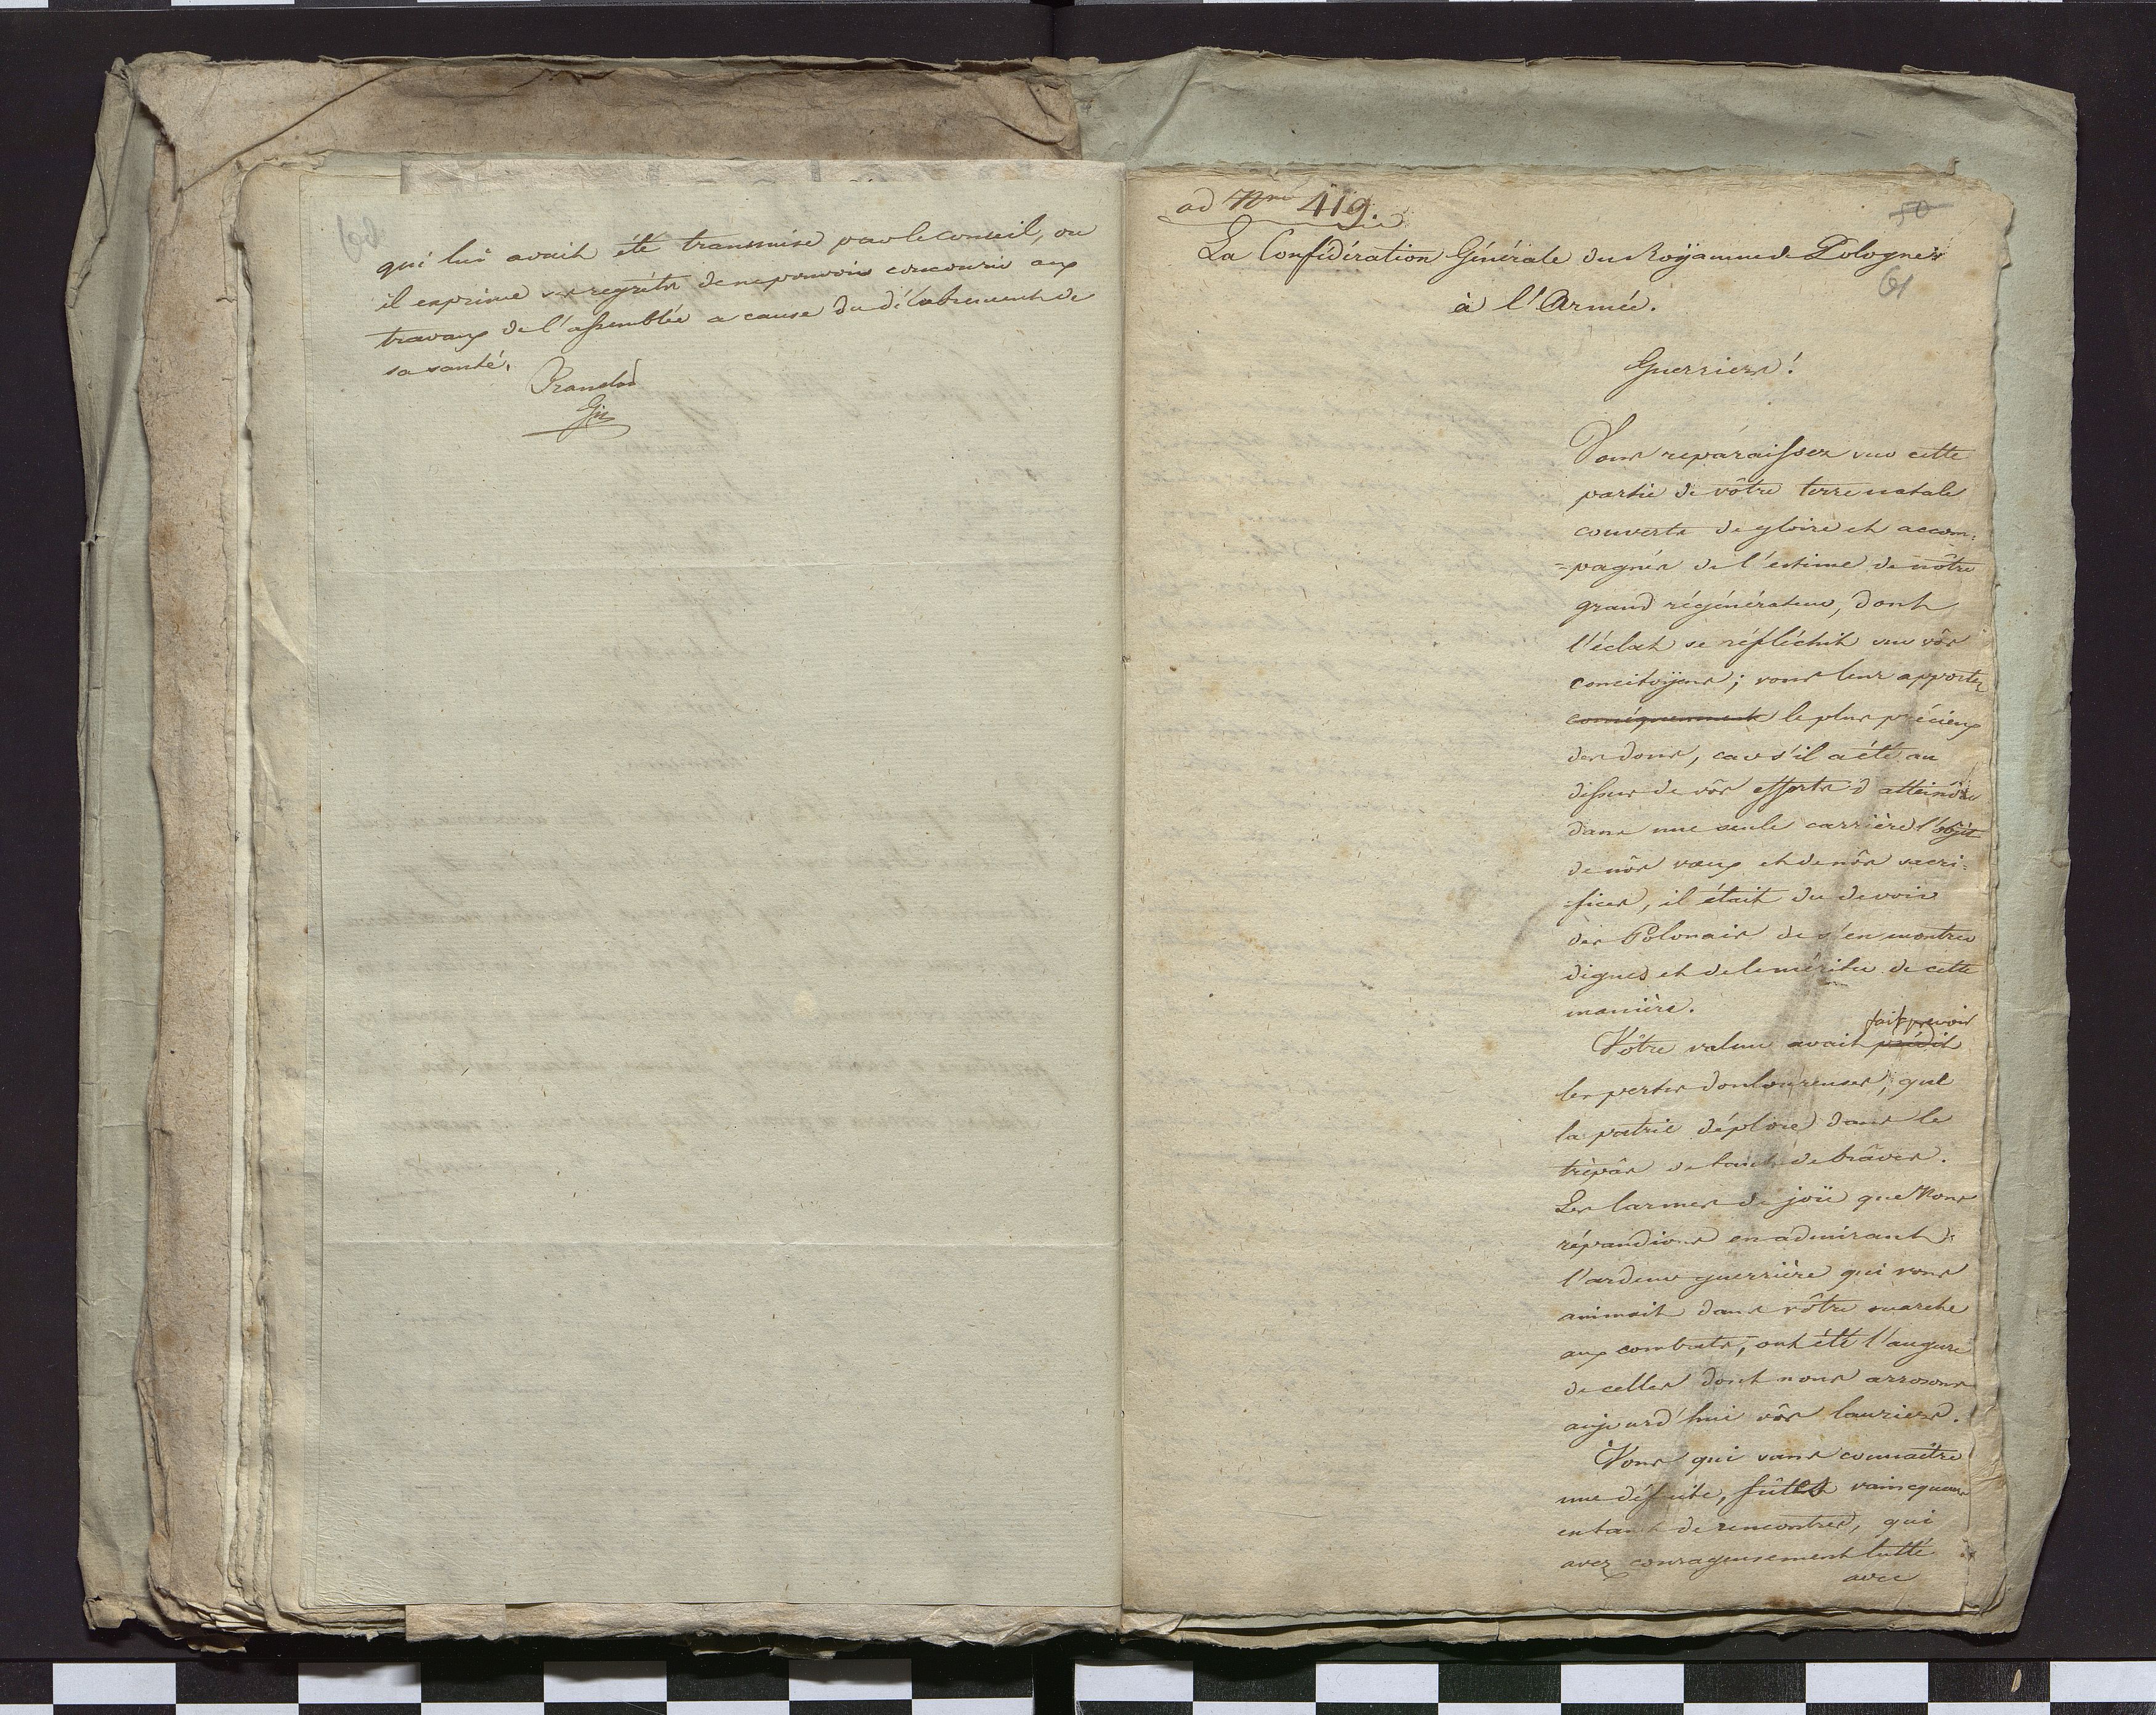 qui lui avait été transmise par le conseil, ou
il exprime ses regréts de ne pouvoir concourir aux
travaux de l'assemblée a cause du délabrement de
sa santé.
ad Nro 419.
50
La Confédération Générale du Royaume de Pologne
61
à l'Armée.
Guerriers!
Vous reparaissez sur cette
partie de vôtre terre natale
couverts de gloire et accom=
=pagnés de l'estime de nôtre
grand régénérateur, dont
l'éclat se réfléchit sur vôs
concitoÿens; vous leur apportez
conséquemment le plus précieux
des dons, car s'il a été au
dessus de vôs efforts d'atteindre
dans une seule carrière l'objèt
de nôs vœux et de nôs sacri=
=fices, il était du devoir
des Polonais de s'en montrer
dignes et de le mériter de cette
manière.
fait prevoir
Vôtre valeur avait prédit
les pertes douloureuses, que
la patrie déplore dans le
trépâs de tant de brâves.
Les larmes de joïe que Nous
répandions en admirant
l'ardeur guerrière qui vous
animait dans vôtre marche
aux combats, ont été l'augure
de celles dont nous arrosons
aujourd'hui vôs lauriers.
Vous qui sans connaitre
une défaite, fûtes vaincqueurs
en tant de rencontres, qui
avez courageusement lutté
avec